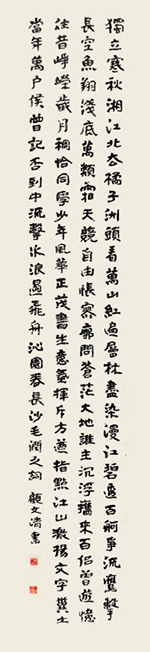 獨立寒秋湘江北去橘子洲頭看萬山紅遍層林盡染漫江碧透百舸爭流鷹擊
長空魚翔淺底萬類霜天競自由悵寥廓問蒼茫大地誰主沉浮攜來百侶曾遊憶
往昔崢嶸歲月稠恰同學少年風華正茂書生意氣揮斥方遒指點江山激揚文字糞土
當年萬戶侯曾記否到中流擊水浪遏飛舟沁園春長沙毛潤之詞顧文清書